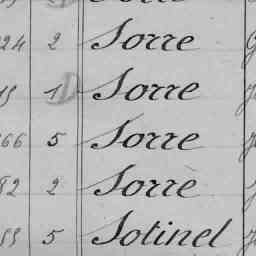 24 2 Sorre
19 1 Sorre
66 5 Sorre
82 2 Sorrè
59 5 Sotinel